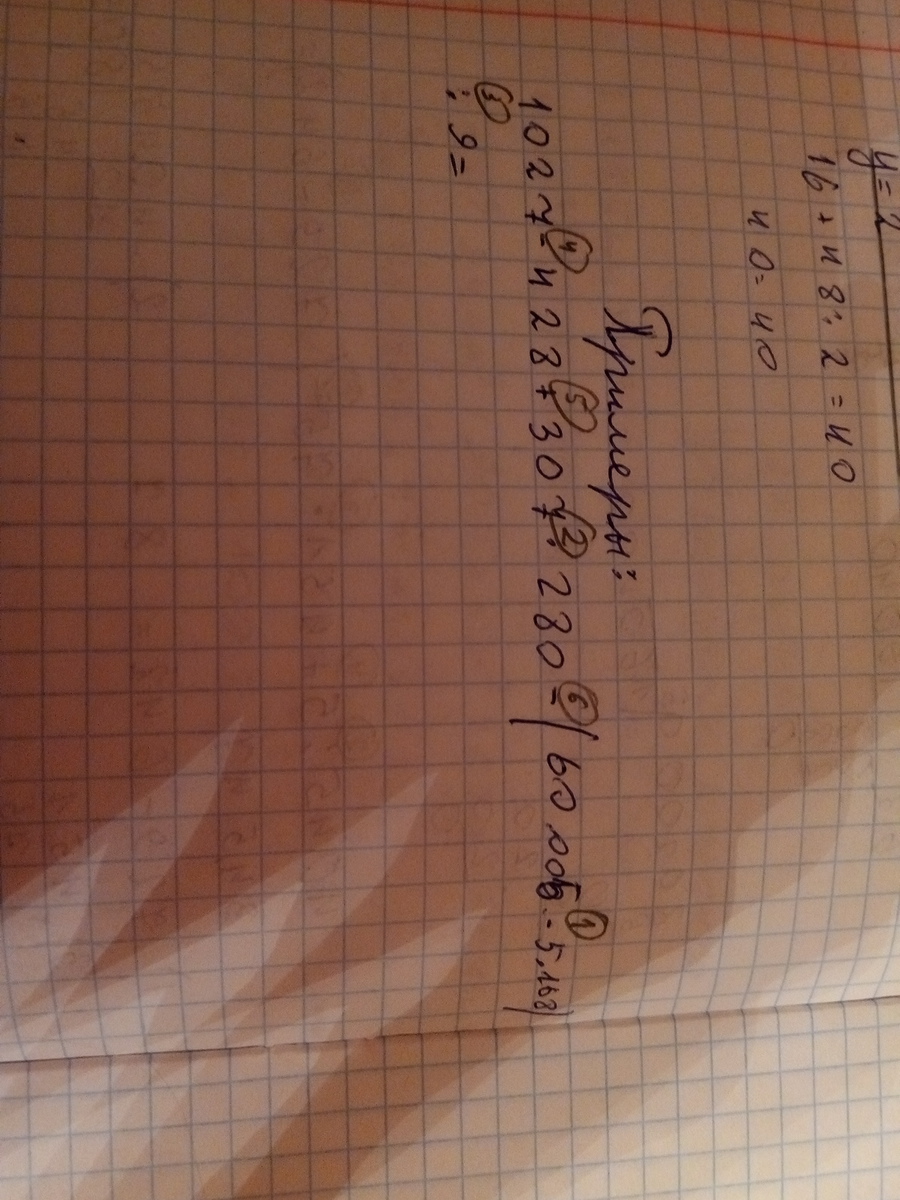 y = 2
16 + 48 : 2 = 40
40 = 40
Примеры:
4 5 2 6 1
1027 - 428 + 307 · 280 - (60.005 - 5.168)
3
: 9 =